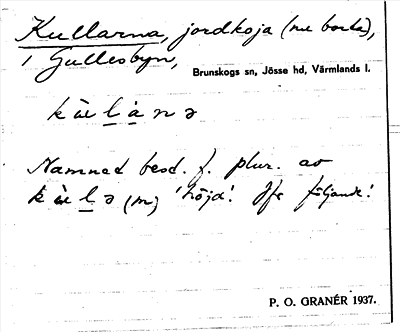 Kullarna, jordkoja (nu borta),
i Gullesbyn,
Brunskogs sn, Jösse hd, Värmlands l.
kùḻa̱nə
Namnet best. f. plur. av
kùḻə (m) 'höjd'. Jfr följande!
P. O. GRANÉR 1937.